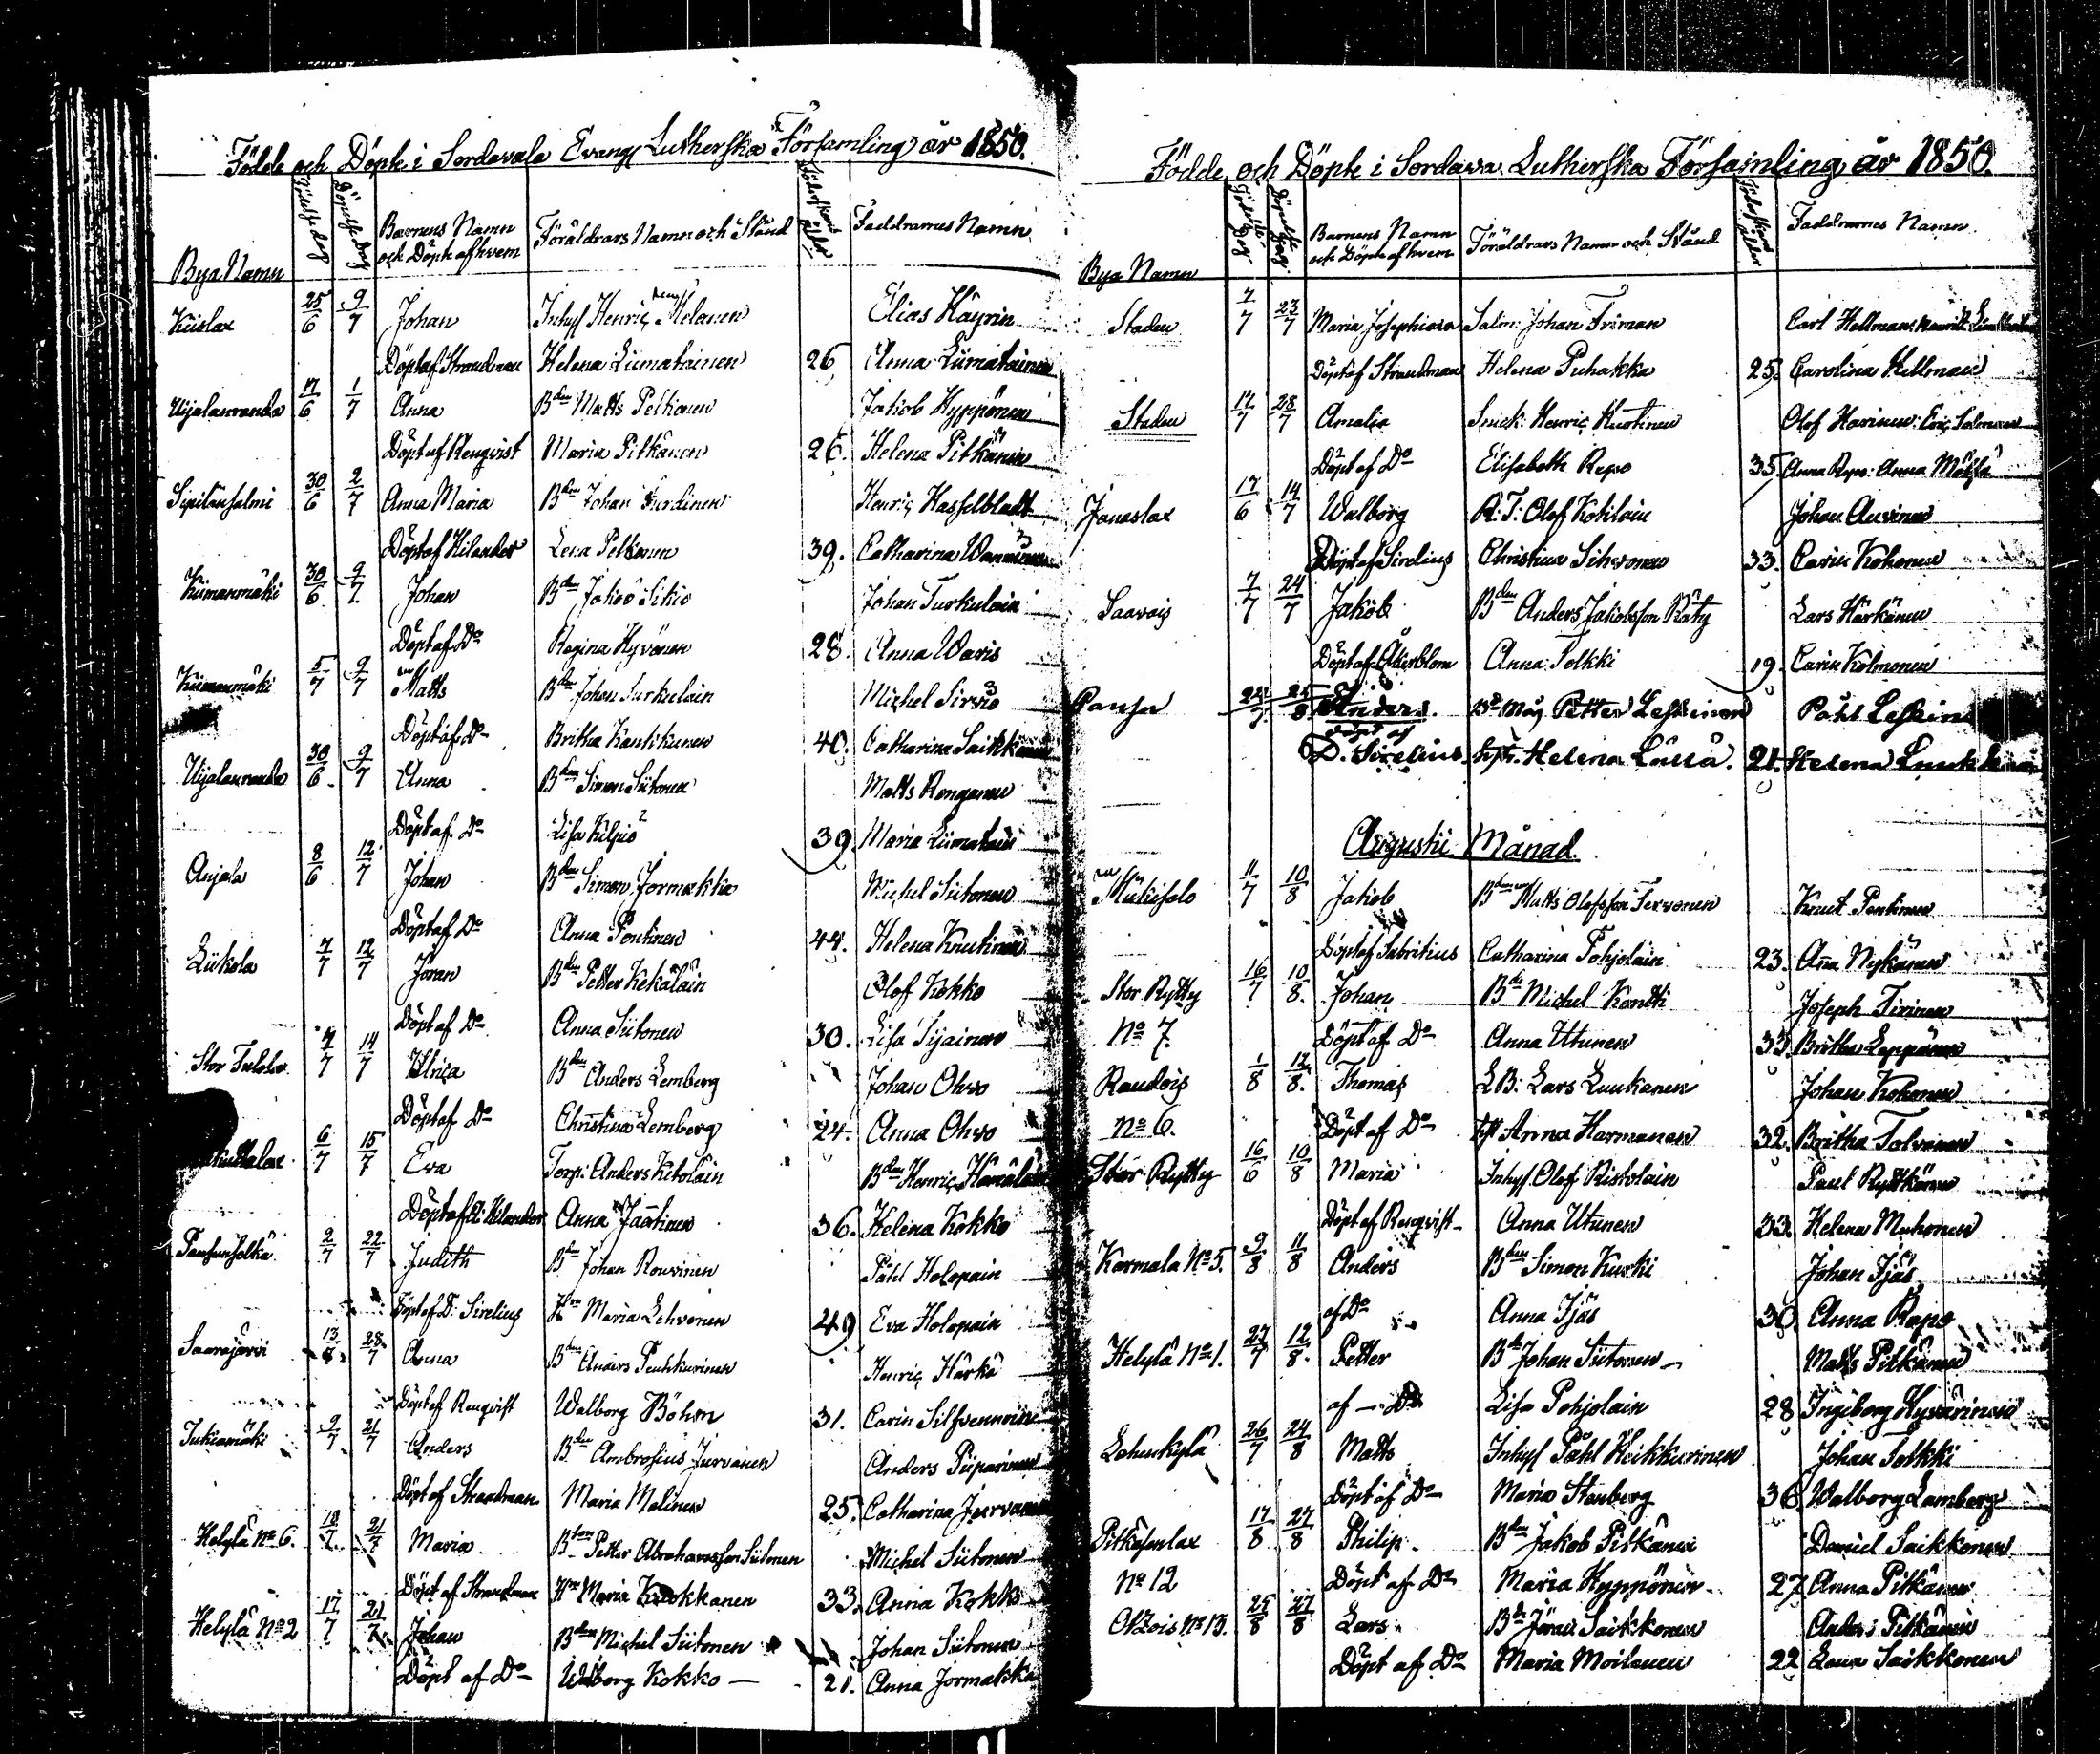 Födde och Döpte i Sordavala Evang Lutherska Församling år 1850.
Bya Namn
Födelse dag
Döpelse dag
Barnens Namn och Döpte af hvem
Föräldrars Namn och Stånd
Ålder
Faddrarnes Namn
Kuislax 25/6 9/7 Johan Inhys Henric Melanen Elias Häyrin
Döpt af Strandman Helena Liimatainen 26 Anna Liimatainen
Uijalanranda 17/6 1/7 Anna Bdn Matts Peltonen Jakob Hyppönen
Döpt af Renqvist Maria Pitkänen 26. Helena Pitkänen
30/6 2/7 Anna Maria Bdn Johan Henric Hasselbladt
Döpt af Hilander Lena Peltonen 39. Catharina
Kiimanmäki 30/6 9/7 Johan Bdn Jakob Sikiö Johan Turkulain
Döpt af Do Regina Hyvönen 28. Anna Waris
Kiimanmäki 5/7 9/7 Matts Bdn Johan Turkulain Michel Sirviö
Döpt af Do Britha 40. Catharina
Uijalanranda 30/6 9/7 Anna Bdn Simon Siitonen Matts Ronganen
Döpt af Do Lisa Kilpiö 39. Maria Liimatain
Anjala 8/6 12/7 Johan Bdn Simon Jormakka Michel Siitonen
Döpt af Do Anna Pentinen 44. Helena Knutinen
Liikola 7/7 12/7 Jöran Bdn Petter Kekäläin Olof Kokko
Döpt af Do Anna Siitonen 30. Lisa Sijainen
Stor 7/7 14/7 Ulrica Bdn Anders Lemberg Johan Ohvo
Döpt af Do Christina Lemberg 24. Anna Ohvo
6/7 15/7 Eva Torp: Anders Kitolain Bdn Henric
Döpt af Hilander Anna Jaatinen 36. Helena Kokko
2/7 22/7 Judith Bdn Johan Rouvinen Påhl Holopain
Döpt af D. Sirelius Hn Maria Lehvonen 49 Eva Holopain
Saarajärvi 13/7 28/7 Anna Bdn Anders Henric Härkö
Döpt af Renqvist Walborg Böhm 31. Carin Silfvennoinen
Tukiamäki 9/7 21/7 Anders Bdn Ambrosius Jurvanen Anders Piiparinen
Döpt af Strandman Maria Malinen 25. Catharina Jurvanen
Helylä No 6. 18/7 21/7 Maria Bdn Petter Abrahamsson Siitonen Michel Siitonen
Döpt af Strandman Hn Maria Kuokkanen 33. Anna Kokko
Helylä No 2 17/7 21/7 Johan Bdn Michel Siitonen Johan Siitonen
Döpt af Do Walborg Kokko 21. Anna Jormakka
Födde och Döpte i Sordawa. Lutherska Församling år 1850.
Bya Namn
Födelse Dag
Döpelse Dag
Barnens Namn och Döpte af hvem
Föräldrars Namn och Stånd
Ålder
Faddrarnes Namn
Staden 7/7 23/7 Maria Josephina Salm: Johan Friman Carl Hellman:
Döpt af Strandman Helena Puhakka 25. Carolina Hellman
Staden 12/7 28/7 Amalia Snick: Henric Olof Havinen: Eric
Döpt af Do Elisabeth Repo 35 Anna Repo: Anna
Janaslax 17/6 14/7 Walborg R. T: Olof Kokilain Johan Auvinen
Döpt af Sirelius Christina Sihvonen 33. Carin Kohonen
Saavais 7/7 24/7 Jakob Bdn Anders Jakobsson Räty Lars Härkönen
Döpt af Åkerblom Anna Tolkki 19. Carin Kolmonen
Anders. Petter Leskinen Påhl Leskinen
döpt af
D. Sirelius. Helena 21. Helena
Augusti Månad.
11/7 10/8 Jakob Bdn Matts Olofsson Tervonen Knut Pentinen
Döpt af Fabritius Catharina Pohjolain 23. Anna Nykänen
Stor Rytty 16/7 10/8. Johan Bdn Michel Kontti Joseph Tirinen
No 7. Döpt af Do Anna Utunen 33 Britha Leppänen
Raudois 1/8 12/8. Thomas L B: Lars Luukanen Johan Kohonen
No 6. Döpt af Do Anna Harmanen 32. Britha Tolvanen
Stor Rytty 16/6 10/8 Maria Inhys. Olof Ristolain Paul Rytkönen
Döpt af Renqvist Anna Utunen 33. Helena Muhonen
Karmala No 5. 9/8 11/8 Anders Bdn Simon Kurki Johan Ijäs
af Do Anna Ijäs 30. Anna Repo
Helylä No 1. 27/7 12/8. Petter Bdn Johan Siitonen Matts Pitkänen
af Do Lisa Pohjolain 28 Ingeborg Hyvärinen
Lahenkylä 26/7 24/8 Matts Inhys Påhl Heikkurinen Johan Tolkki
Döpt af Do Maria Stenberg 36. Walborg Lamberg
Pitkäjenlax 17/8. 27/8 Philip. Bdn Jakob Pitkänen Daniel Saikkonen
No 12 Döpt af Do Maria Hyppönen 27 Anna Pitkänen
Otzois No 13. 25/8 27/8 Lars Bdn Jöran Saikkonen Anders Pitkänen
Döpt af Do Maria Moilanen 22 Lena Saikkonen